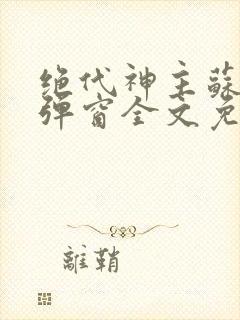 绝代神主蘇
弹窗全文免
離鞘